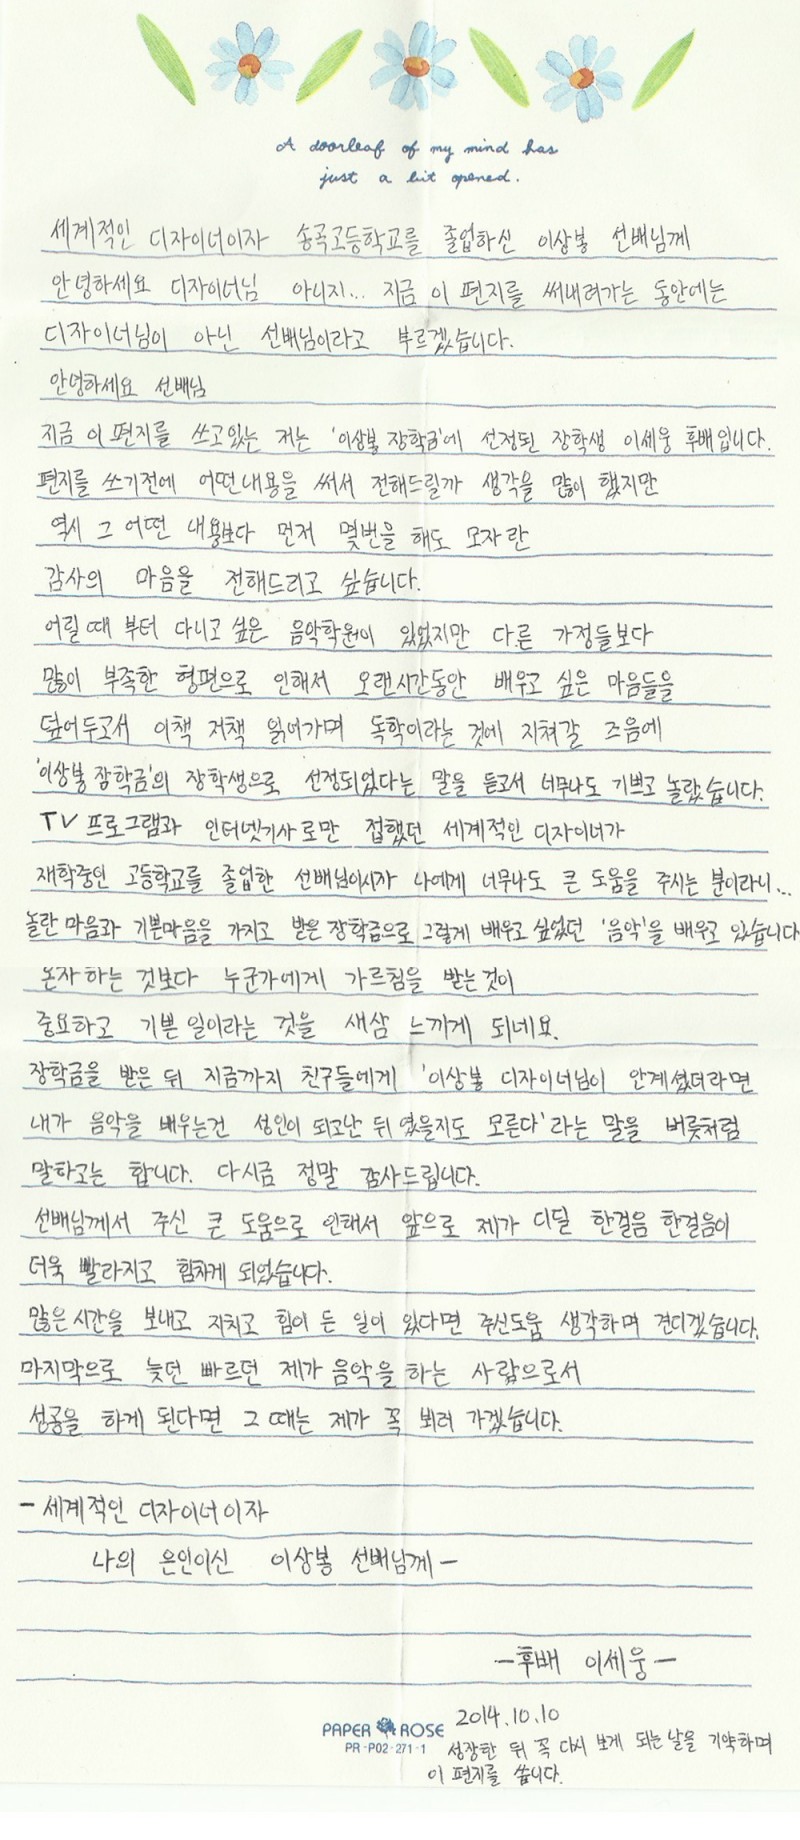 A doorleaf of my mind has
just a bit opened.
세계적인 디자이너이자 송곡고등학교를 졸업하신 이상봉 선배님께
안녕하세요 디자이너님 아니지... 지금 이 편지를 써내려가는 동안에는
디자이너님이 아닌 선배님이라고 부르겠습니다.
안녕하세요 선배님
지금 이 편지를 쓰고있는 저는 '이상봉 장학금'에 선정된 장학생 이세웅 후배입니다.
편지를 쓰기전에 어떤내용을 써서 전해드릴까 생각을 많이 했지만
역시 그 어떤 내용보다 먼저 몇번을 해도 모자란
감사의 마음을 전해드리고 싶습니다.
어릴때 부터 다니고 싶은 음악학원이 있었지만 다른 가정들보다
많이 부족한 형편으로 인해서 오랜시간동안 배우고 싶은 마음들을
덮어두고서 이책 저책 읽어가며 독학이라는 것에 지쳐갈 즈음에
'이상봉 장학금'의 장학생으로 선정되었다는 말을 듣고서 너무나도 기쁘고 놀랐습니다.
TV 프로그램과 인터넷기사로만 접했던 세계적인 디자이너가
재학중인 고등학교를 졸업한 선배님이시자 나에게 너무나도 큰 도움을 주시는 분이라니...
놀란 마음과 기쁜마음을 가지고 받은 장학금으로 그렇게 배우고 싶었던 '음악'을 배우고 있습니다
혼자 하는 것보다 누군가에게 가르침을 받는것이
중요하고 기쁜 일이라는 것을 새삼 느끼게 되네요.
장학금을 받은 뒤 지금까지 친구들에게 '이상봉 디자이너님이 안계셨더라면
내가 음악을 배우는건 성인이 되고난 뒤 였을지도 모른다'라는 말을 버릇처럼
말하고는 합니다. 다시금 정말 감사드립니다.
선배님께서 주신 큰 도움으로 인해서 앞으로 제가 디딜 한걸음 한걸음이
더욱 빨라지고 힘차게 되었습니다.
많은 시간을 보내고 지치고 힘이 든 일이 있다면 주신도움 생각하며 견디겠습니다.
마지막으로 늦던 빠르던 제가 음악을 하는 사람으로서
성공을 하게 된다면 그 때는 제가 꼭 뵈러 가겠습니다.
- 세계적인 디자이너이자
나의 은인이신 이상봉 선배님께 -
- 후배 이세웅 -
PAPER ROSE
PR-P02-271-1
2014.10.10
성장한 뒤 꼭 다시 보게 되는날을 기약하며
이 편지를 씁니다.